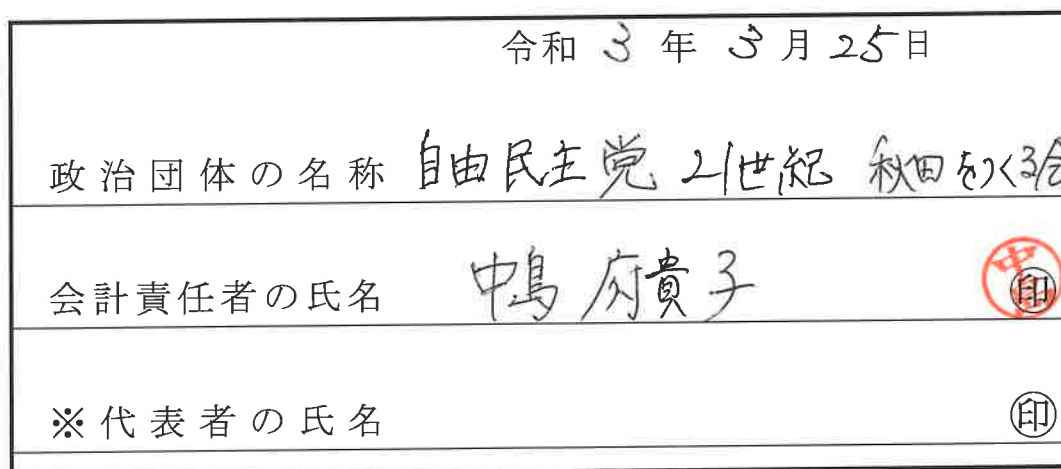 令和 3 年 3 月 25 日
政治団体の名称 自由民主党 21世紀 秋田をつくる会
会計責任者の氏名 中島 府貴子 中島 印
※代表者の氏名 印